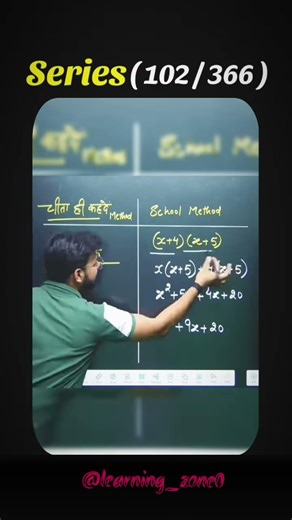 Series (102/366)
चीता ही कहदे Method
School Method
(x+4) (x+5)
x(x+5) + 4(x+5)
x² + 5 + 4x + 20
+ 9x + 20
@learning_zone0